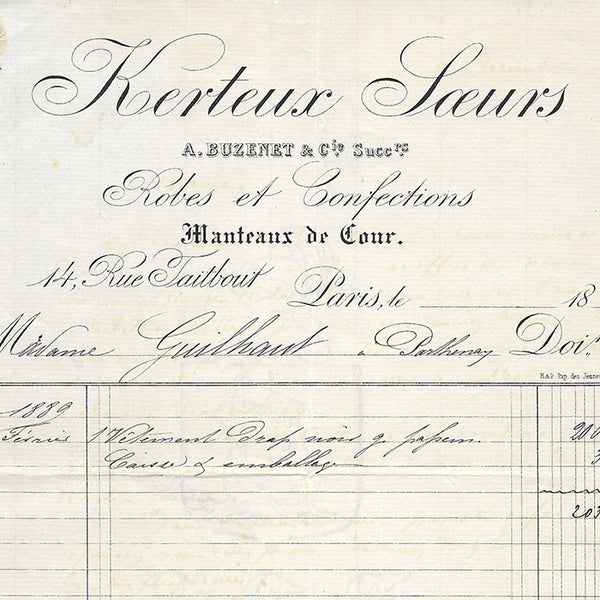 Kerteux Sœurs
A. BUZENET & Cie Succrs
Robes et Confections
Manteaux de Cour.
14, Rue Taitbout
Paris, le 18
Madame Guilhaut à Parthenay Doit
H&D. Imp. des Jeune
1889
Février 1 Vêtement drap noir g. passem.
Caisse & emballage
203